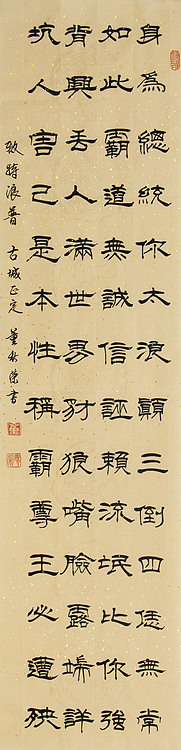 身為總統你太浪顛三倒四恁無常
如此霸道無誠信誣賴流氓比你強
背興丟人滿世界豺狼嘴臉露端詳
坑人害己是本性稱霸尊王必遭殃
致特浪普 古城正定 董秋榮書